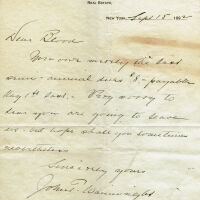 REAL ESTATE,
NEW YORK, Sept 15 1892
Dear Blood
You owe merely the last
semi-annual dues $8 - payable
Aug 1st last. - Very sorry to
hear you are going to leave
us - but hope shall you sometimes
nevertheless
Sincerely yours
John T. Wainwright